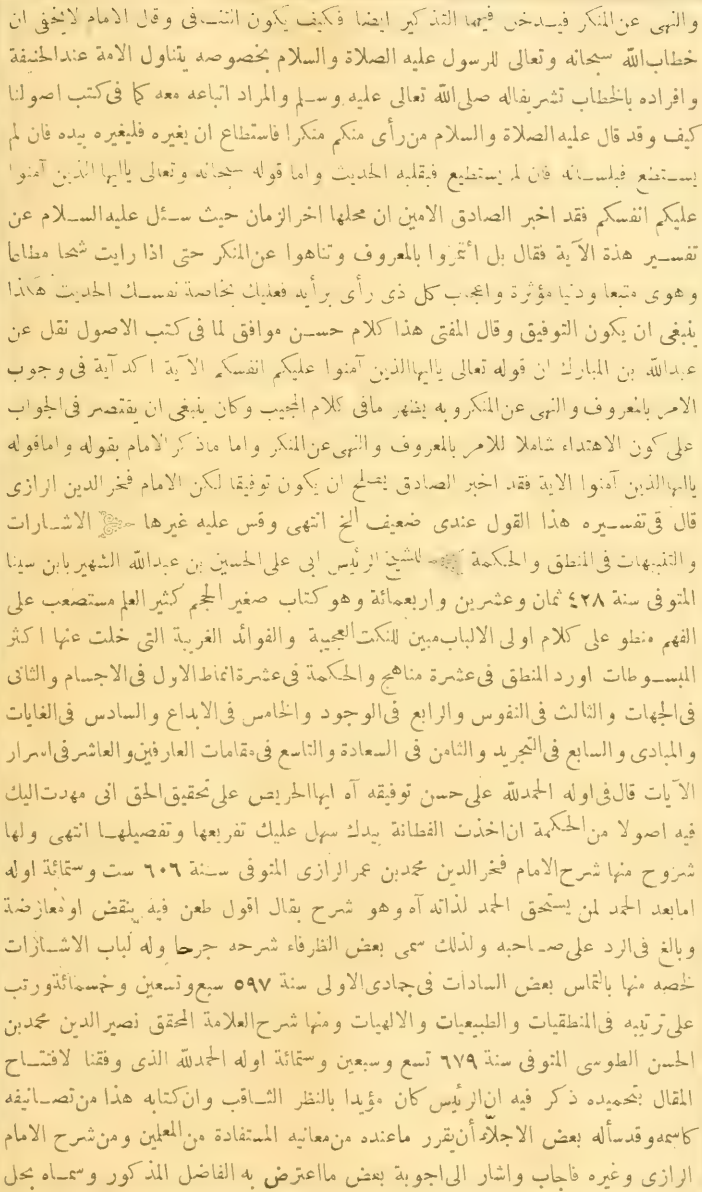 والنهى عن المنكر فيدخل فيهما التذكير ايضا فكيف يكون انتفى وقال الامام لايخفى ان
خطاب الله سبحانه وتعالى للرسول عليه الصلاة والسلام بخصوصه يتناول الامة عندالحنيفة
وافراده بالخطاب تشريفاله صلى الله تعالى عليه وسلم والمراد اتباعه معه كما فى كتب اصولنا
كيف وقد قال عليه الصلاة والسلام من رأى منكم منكرا فاستطاع ان يغيره فليغيره بيده فان لم
يستطع فبلسانه فان لم يستطيع فبقلبه الحديث واما قوله سبحانه وتعالى ياايها الذين آمنوا
عليكم انفسكم فقد اخبر الصادق الامين ان محلها اخر الزمان حيث سئل عليه السلام عن
تفسير هذة الآية فقال بل ائتمروا بالمعروف وتناهوا عن المنكر حتى اذا رايت شحا مطاعا
وهوى متبعا ودنيا مؤثرة واعجاب كل ذى رأى برأيه فعليك بخاصة نفسك الحديث هكذا
ينبغى ان يكون التوفيق وقال المفتى هذا كلام حسن موافق لما فى كتب الاصول نقل عن
عبدالله بن المبارك ان قوله تعالى ياايهاالذين آمنوا عليكم انفسكم الآية اكد آية فى وجوب
الامر بالمعروف والنهى عن المنكر وبه يظهر مافى كلام المجيب وكان ينبغى ان يقتصر فى الجواب
على كون الاهتداء شاملا للامر بالمعروف والنهى عن المنكر واما ماذكر الامام بقوله وامافوله
ياايهاالذين آمنوا الاية فقد اخبر الصادق يصلح ان يكون توفيقا لكن الامام فخر الدين الرازى
قال فى تفسيره هذا القول عندى ضعيف الخ انتهى وقس عليه غيرها الاشارات
والتنبيهات فى المنطق والحكمة للشيخ الرئيس ابى على الحسين بن عبدالله الشهير بابن سينا
المتوفى سنة ٤٢٨ ثمان وعشرين واربعمائة وهو كتاب صغير الحجم كثير العلم مستصعب على
الفهم منطو على كلام اولى الالباب مبين للنكت العجيبة والفوائد الغريبة التى خلت عنها اكثر
المبسوطات اورد المنطق فى عشرة مناهج والحكمة فى عشرة انماط الاول فى الاجسام والثانى
فى الجهات والثالث فى النفوس والرابع فى الوجود والخامس فى الابداع والسادس فى الغايات
والمبادى والسابع فى التجريد والثامن فى السعادة والتاسع فى مقامات العارفين والعاشر فى اسرار
الآيات قال فى اوله الحمدلله على حسن توفيقه آه ايهاالحريص على تحقيق الحق انى مهدت اليك
فيه اصولا من الحكمة ان اخذت الفطانة بيدك سهل عليك تفريعها وتفصيلها انتهى ولها
شروح منها شرح الامام فخر الدين محمدبن عمر الرازى المتوفى سنة ٦٠٦ ست وستمائة اوله
امابعد الحمد لمن يستحق الحمد لذاته آه وهو شرح بقال اقول طعن فيه بنقض اومعارضة
وبالغ فى الرد على صاحبه ولذلك سمى بعض الظرفاء شرحه جرحا وله لباب الاشارات
لخصه منها بالتماس بعض السادات فى جمادى الاولى سنة ٥٩٧ سبع وتسعين وخمسمائة ورتب
على ترتيبه فى المنطقيات والطبيعيات والالهيات ومنها شرح العلامة المحقق نصير الدين محمدبن
الحسن الطوسى المتوفى سنة ٦٧٩ تسع وسبعين وستمائة اوله الحمدلله الذى وفقنا لافتتاح
المقال بتحميده ذكر فيه ان الرئيس كان مؤيدا بالنظر الثاقب وان كتابه هذا من تصانيفه
كاسمه وقدسأله بعض الاجلاء أن يقرر ماعنده من معانيه المستفادة من المعلمين ومن شرح الامام
الرازى وغيره فاجاب واشار الى اجوبة بعض مااعترض به الفاضل المذكور وسماه بحل